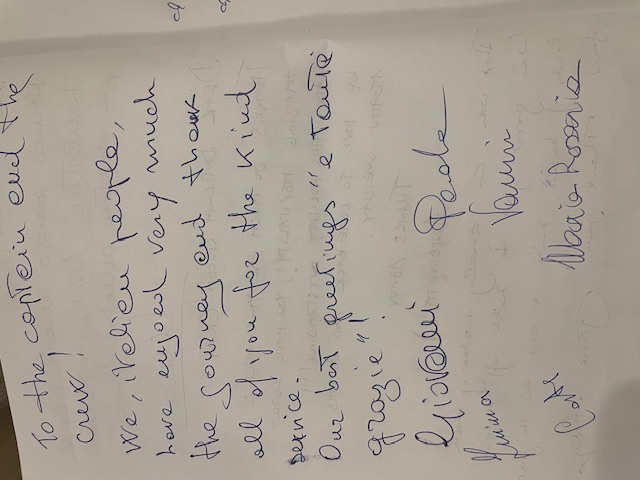 To the captein end the
crew!
We, itelien people,
have enjoed very much
the journey end thank
all of you for the kind
service.
Our best greetings "e tante
grazie"!
Giovanni Paola
Vannin
Maria Rosaria